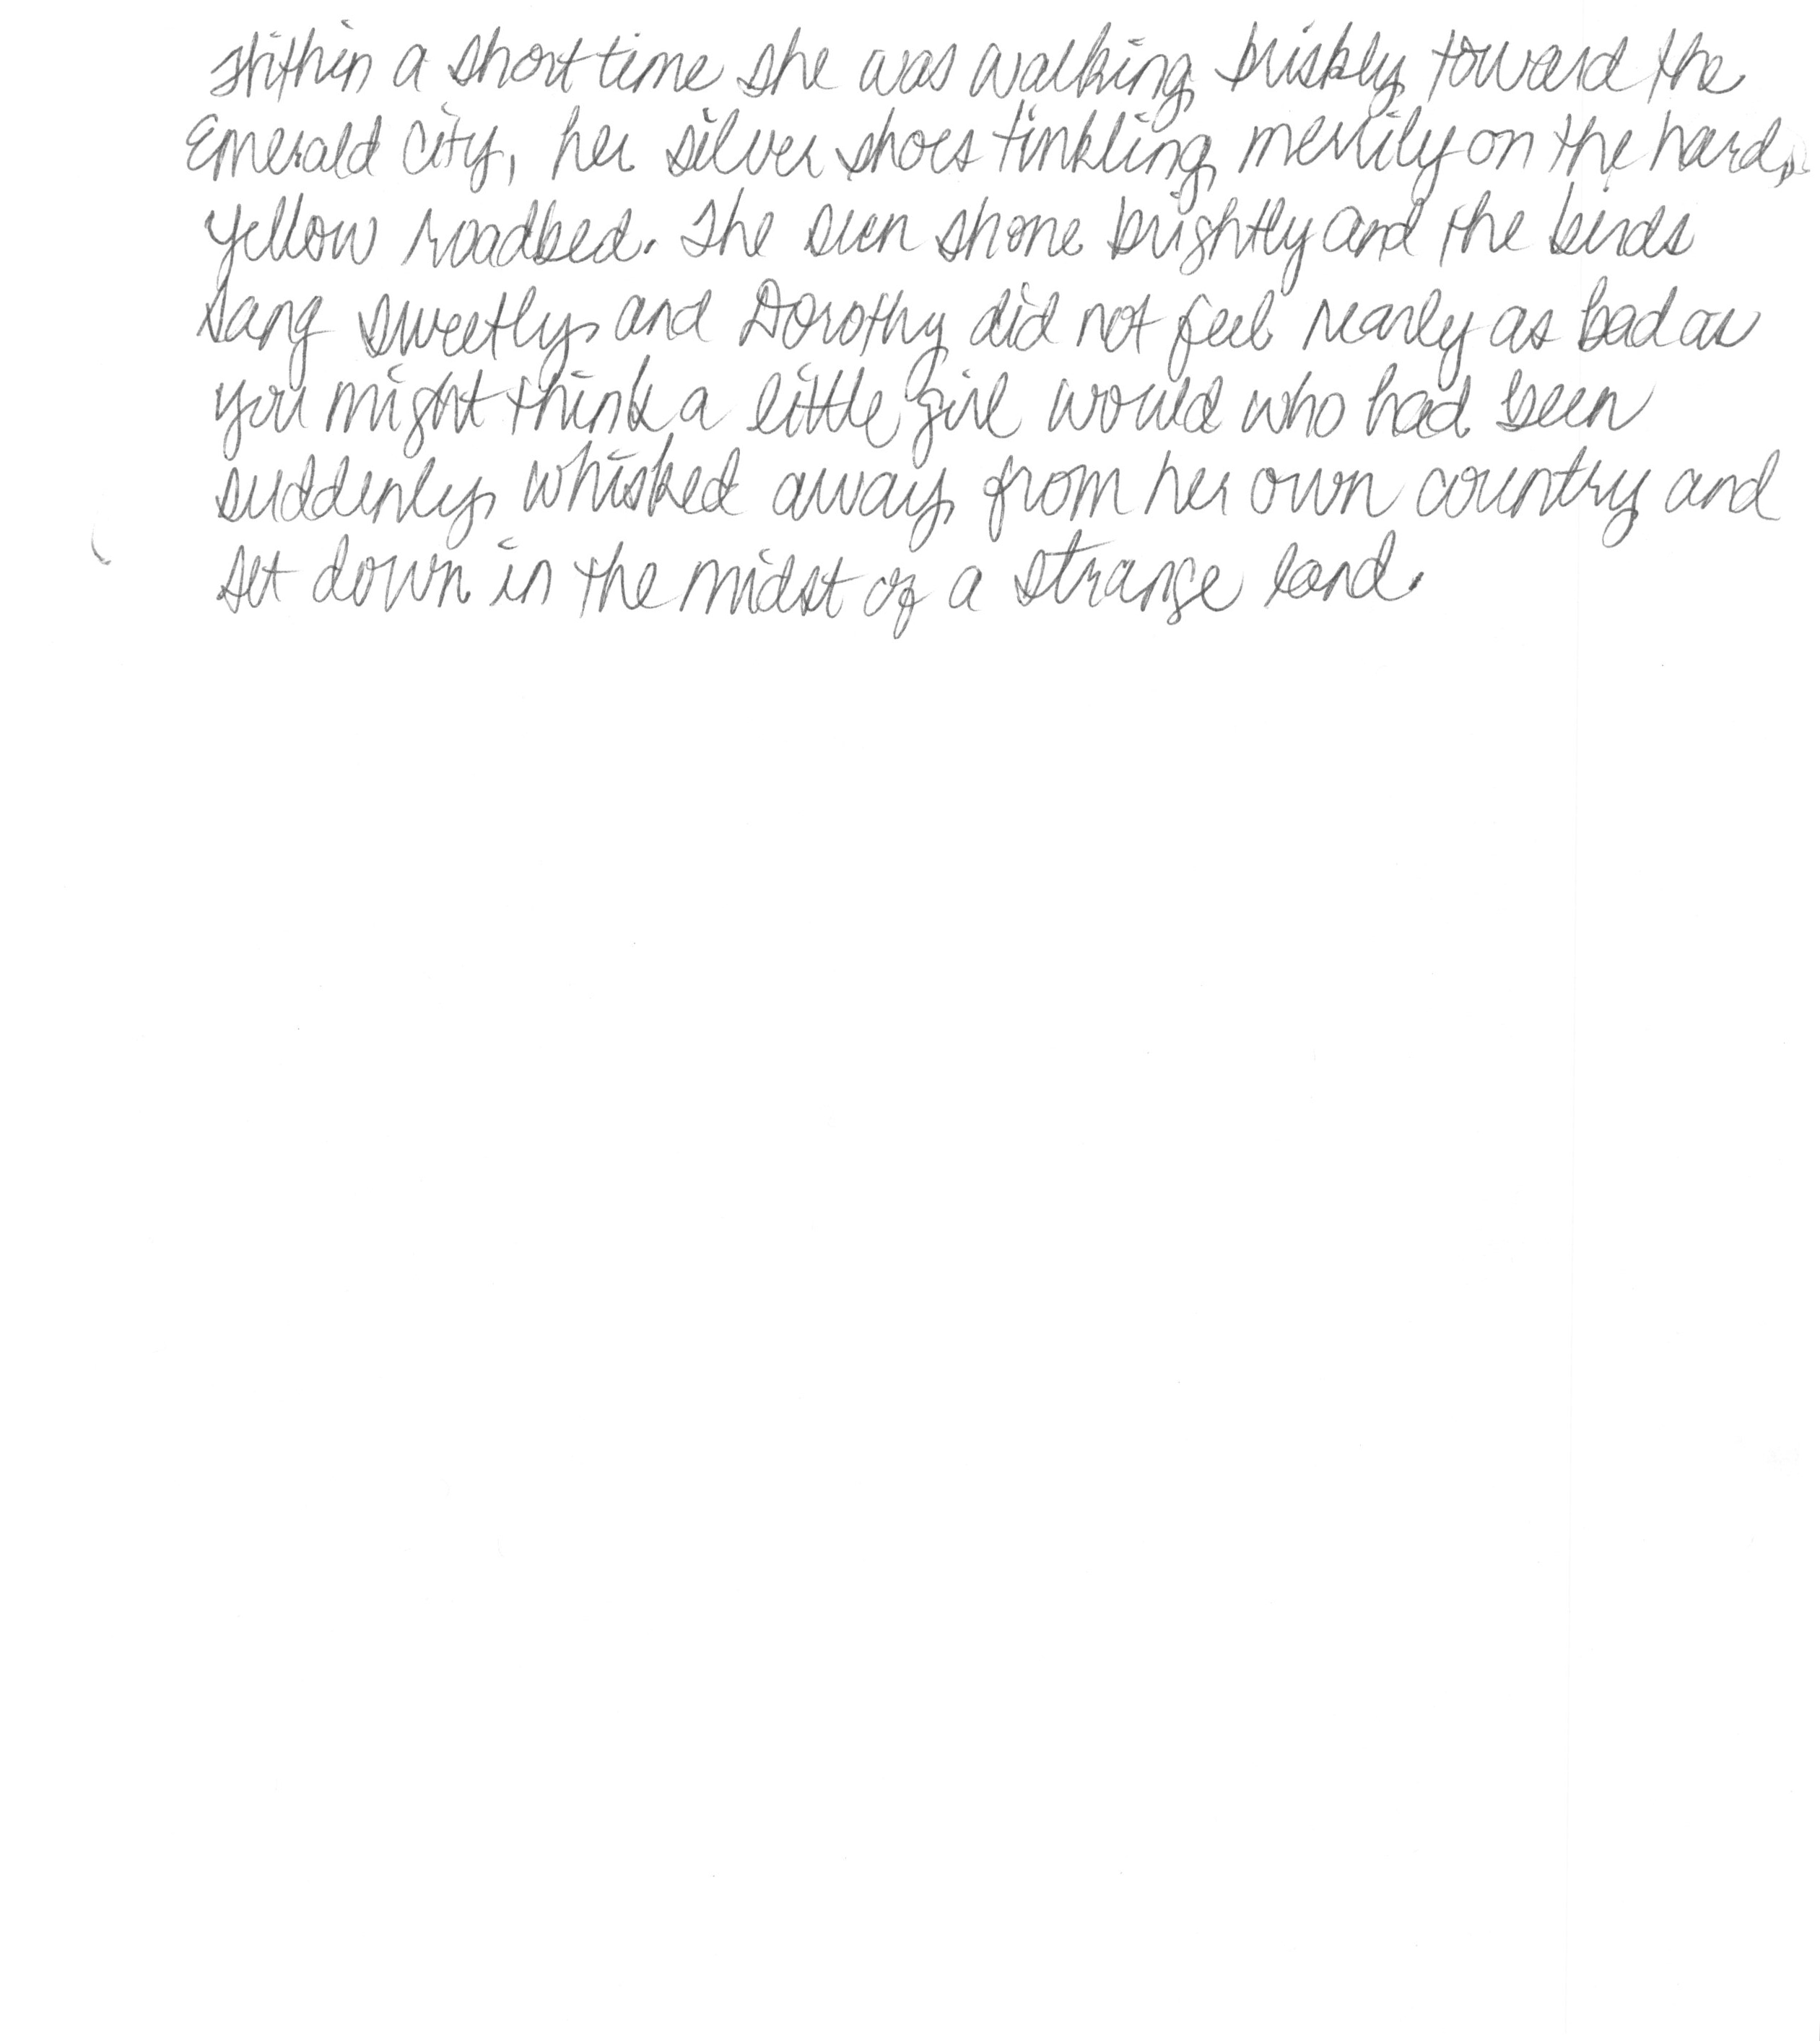 Within a short time she was walking briskly toward the
Emerald City, her silver shoes tinkling merrily on the hard,
yellow roadbed. The sun shone brightly and the birds
sang sweetly and Dorothy did not feel nearly as bad as
you might think a little girl would who had been
suddenly whisked away from her own country and
set down in the midst of a strange land.